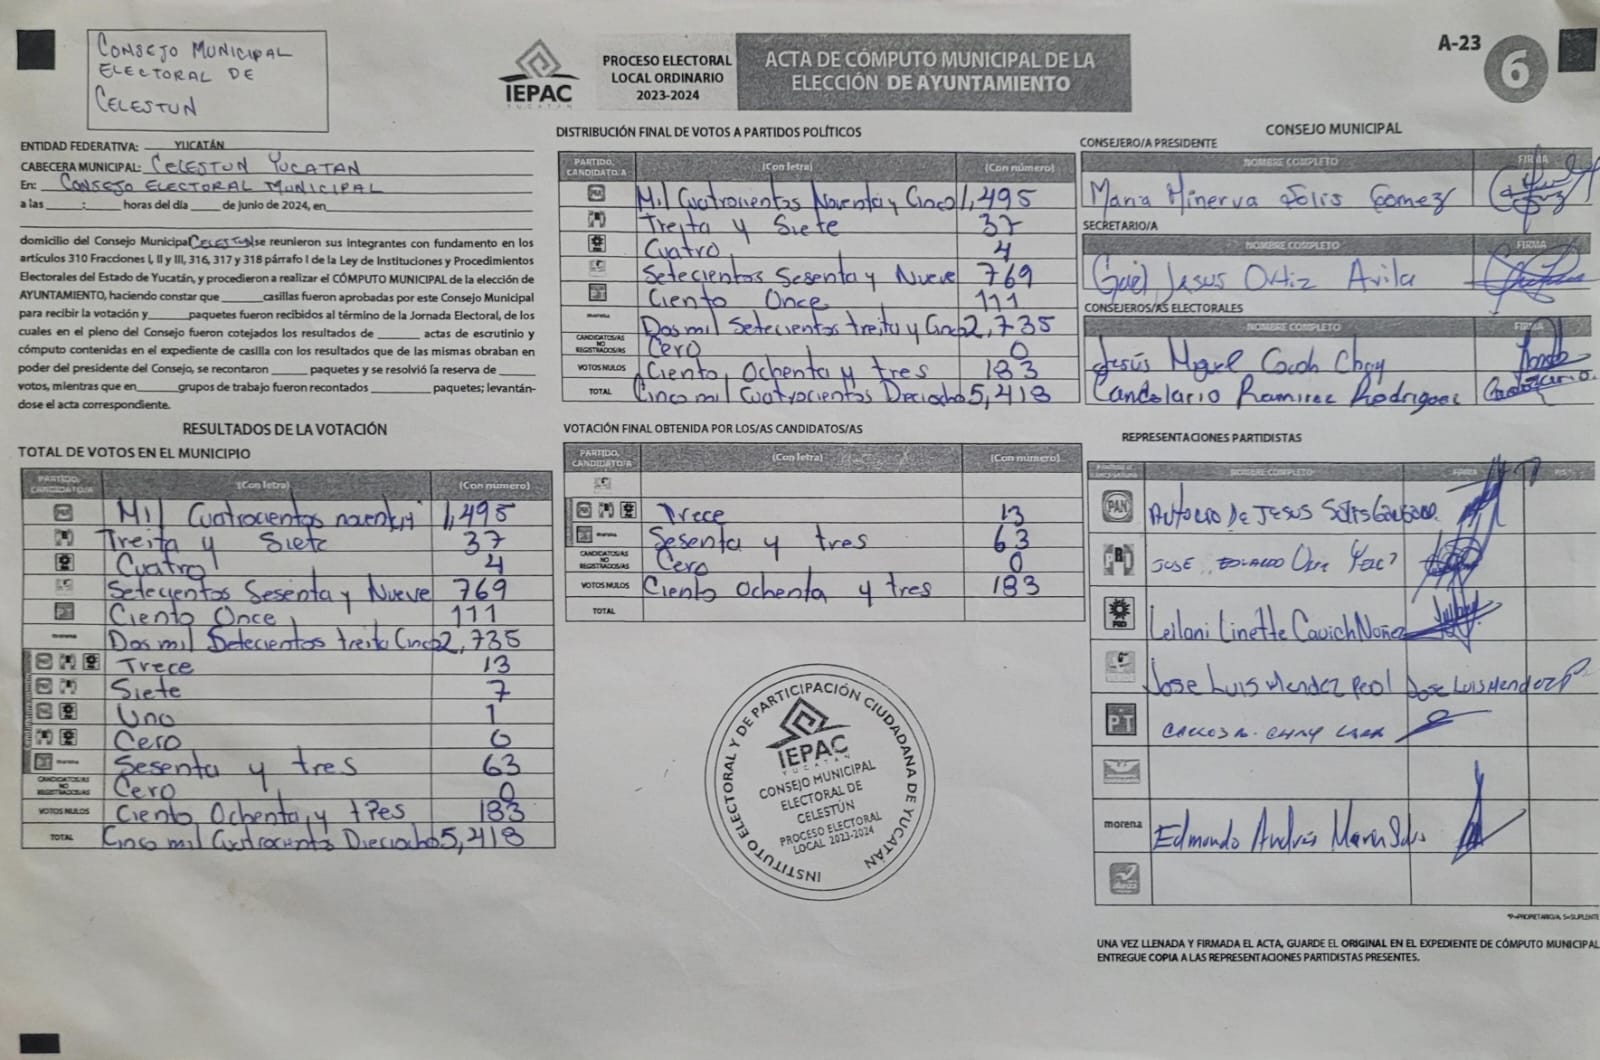 CONSEJO MUNICIPAL
ELECTORAL DE
CELESTUN
IEPAC
YUCATÁN
PROCESO ELECTORAL
LOCAL ORDINARIO
2023-2024
ACTA DE CÓMPUTO MUNICIPAL DE LA
ELECCIÓN DE AYUNTAMIENTO
A-23
6
ENTIDAD FEDERATIVA: YUCATÁN
CABECERA MUNICIPAL: CELESTUN YUCATAN
En: CONSEJO ELECTORAL MUNICIPAL
a las ____:____ horas del día ____ de junio de 2024, en
domicilio del Consejo Municipal CELESTUN se reunieron sus integrantes con fundamento en los
artículos 310 Fracciones I, II y III, 316, 317 y 318 párrafo I de la Ley de Instituciones y Procedimientos
Electorales del Estado de Yucatán, y procedieron a realizar el CÓMPUTO MUNICIPAL de la elección de
AYUNTAMIENTO, haciendo constar que ______ casillas fueron aprobadas por este Consejo Municipal
para recibir la votación y ______ paquetes fueron recibidos al término de la Jornada Electoral, de los
cuales en el pleno del Consejo fueron cotejados los resultados de ______ actas de escrutinio y
cómputo contenidas en el expediente de casilla con los resultados que de las mismas obraban en
poder del presidente del Consejo, se recontaron ____ paquetes y se resolvió la reserva de ____
votos, mientras que en ______ grupos de trabajo fueron recontados ______ paquetes; levantán-
dose el acta correspondiente.
RESULTADOS DE LA VOTACIÓN
TOTAL DE VOTOS EN EL MUNICIPIO
PARTIDO, CANDIDATO/A (Con letra) (Con número)
Mil Cuatrocientos noventa 1,495
Treita y Siete 37
Cuatro 4
Setecientos Sesenta y Nueve 769
Ciento Once 111
morena Dos mil Setecientos treita Cinco 2,735
Trece 13
Siete 7
Uno 1
Cero 0
morena Sesenta y tres 63
CANDIDATOS/AS NO REGISTRADOS/AS Cero 0
VOTOS NULOS Ciento Ochenta y tres 183
TOTAL Cinco mil Cuatrocientos Dieciocho 5,418
DISTRIBUCIÓN FINAL DE VOTOS A PARTIDOS POLÍTICOS
PARTIDO, CANDIDATO/A (Con letra) (Con número)
Mil Cuatrocientos Noventa y Cinco 1,495
Treita y Siete 37
Cuatro 4
Setecientos Sesenta y Nueve 769
Ciento Once 111
morena Dos mil Setecientos treita y Cinco 2,735
CANDIDATOS/AS NO REGISTRADOS/AS Cero 0
VOTOS NULOS Ciento Ochenta y tres 183
TOTAL Cinco mil Cuatrocientos Deciocho 5,418
VOTACIÓN FINAL OBTENIDA POR LOS/AS CANDIDATOS/AS
PARTIDO, CANDIDATO/A (Con letra) (Con número)
Trece 13
morena Sesenta y tres 63
CANDIDATOS/AS NO REGISTRADOS/AS Cero 0
VOTOS NULOS Ciento Ochenta y tres 183
TOTAL
INSTITUTO ELECTORAL Y DE PARTICIPACIÓN CIUDADANA DE YUCATÁN
IEPAC
YUCATÁN
CONSEJO MUNICIPAL
ELECTORAL DE
CELESTÚN
PROCESO ELECTORAL
LOCAL 2023-2024
CONSEJO MUNICIPAL
CONSEJERO/A PRESIDENTE
NOMBRE COMPLETO FIRMA
Maria Minerva Solis Gomez
SECRETARIO/A
NOMBRE COMPLETO FIRMA
Gael Jesus Ortiz Avila
CONSEJEROS/AS ELECTORALES
NOMBRE COMPLETO FIRMA
Jesús Miguel Cooh Chay
Candelario Ramirez Rodriguez
REPRESENTACIONES PARTIDISTAS
NOMBRE COMPLETO FIRMA
PAN DE JESUS SOLIS
PRD JOSE EDUARDO
Leilani Linette Cauich Nuñez
Jose Luis Mendez Pool Jose Luis Mendez P
PT CARLOS CHAY
morena Edmundo Andrés Marin Solis
P=PROPIETARIO/A, S=SUPLENTE
UNA VEZ LLENADA Y FIRMADA EL ACTA, GUARDE EL ORIGINAL EN EL EXPEDIENTE DE CÓMPUTO MUNICIPAL
ENTREGUE COPIA A LAS REPRESENTACIONES PARTIDISTAS PRESENTES.